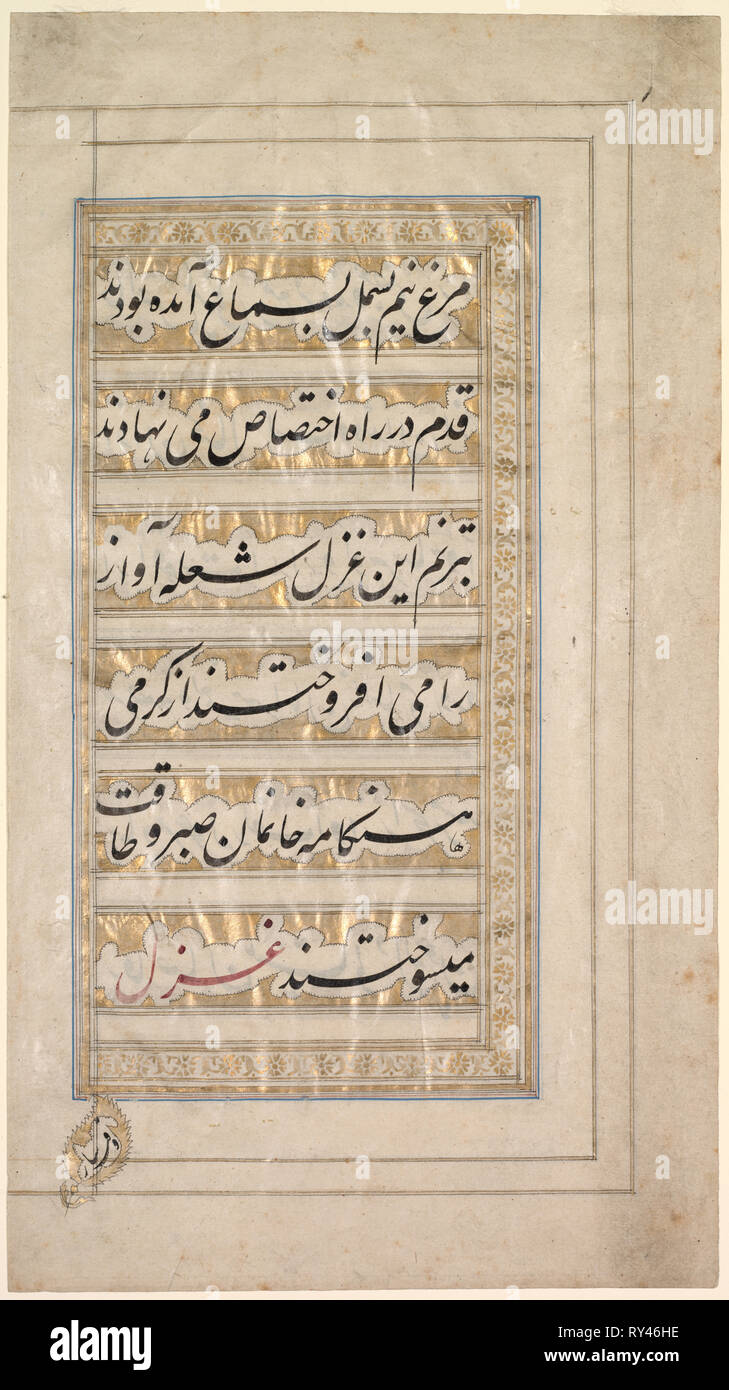 مرغ نیم بسمل بسماع آمده بودند
قدم در راه اختصاص می نهادند
بترنم این غزل شعله آواز
را می افروختند از گرمی
هنگامه خانمان صبر و طاقت
میسوختند غزل
a
alamy
alamy
Image ID: RY46HE
www.alamy.com